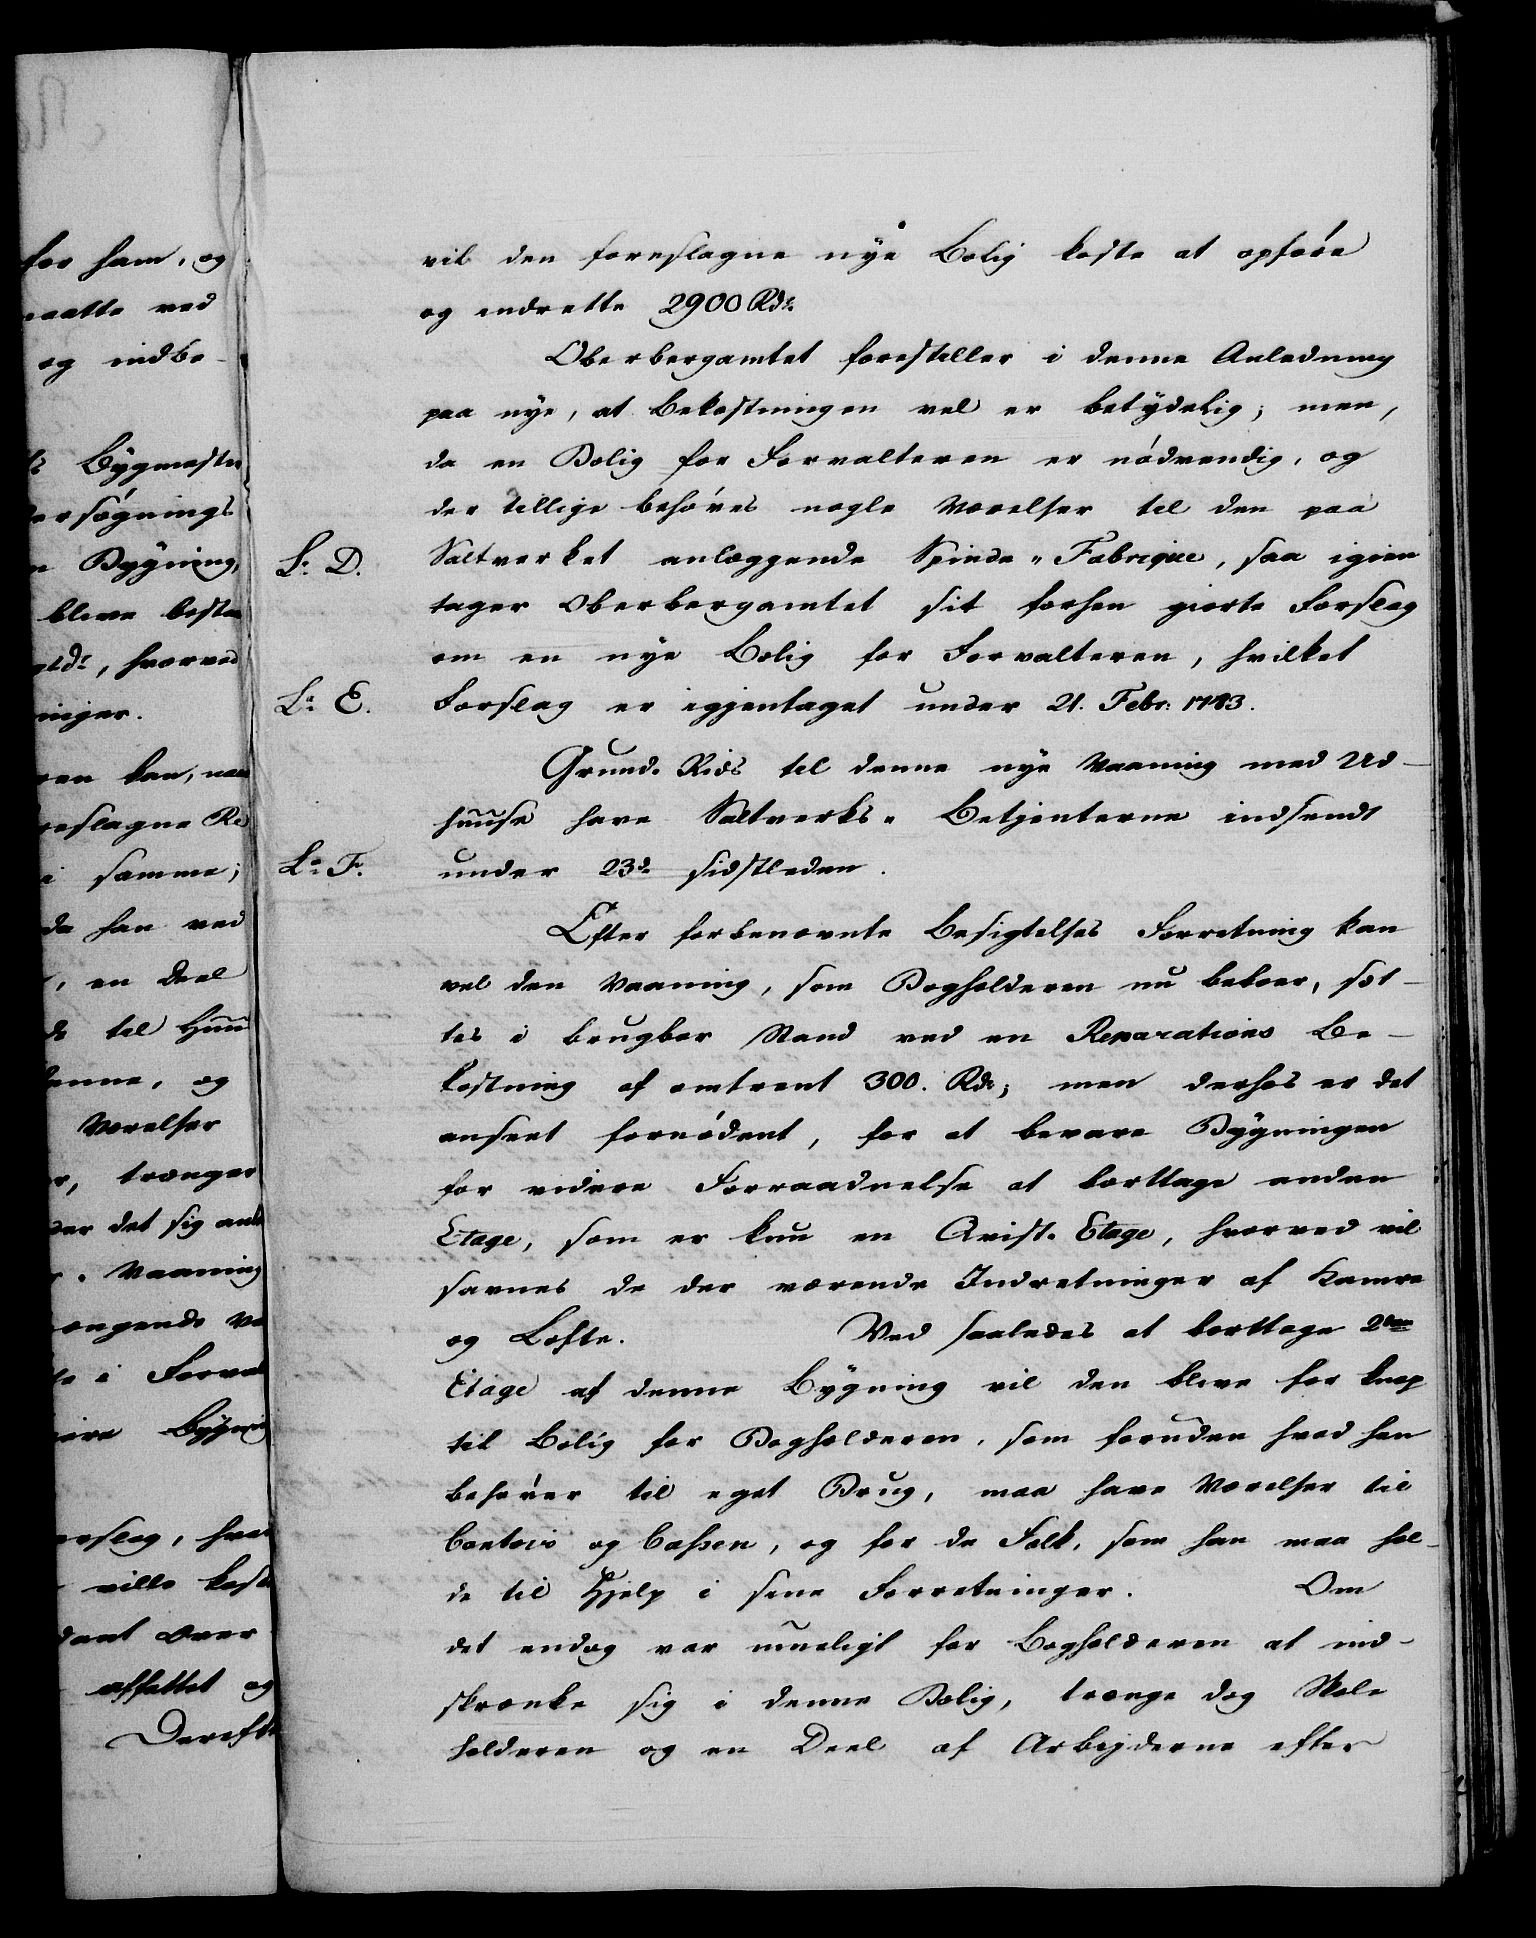 for ham, og
maatte ved
og indbe-
Bygmester
dersøgnings
Bygning,
bleve beste
, hvorved
ninger.
ren kan, naar
reslagne Re
i samme;
da han ved
, en Deel
til Huus
denne, og
Værelser
r, trænger
der det sig
Vaaning
ængende Væ
te i Forval
Bygning
orslag, hvor
ville koste
dant over
affattet og
Derefter
vil den foreslagne nye Bolig koste at opføre
og indrette 2900 Rdr.
Oberbergamtet forestiller i denne Anledning
paa nye, at Bekostningen vel er betydelig; men,
da en Bolig for Forvalteren er nödvendig, og
der tillige behøves nogle Værelser til den paa
Lr. D. Saltverket anlæggende Spinde-Fabrique, saa igien
tager Oberbergamtet sit forhen giorte Forslag
om en nye Bolig for Forvalteren, hvilket
Lr. E. Forslag er igjentaget under 21. Febr. 1783.
Grund-Rids til denne nye Vaaning med Ud-
huuse have Saltverks-Betjenterne indsendt
Lr. F. under 23de sidstleden.
Efter forbenævnte Besigtelses Forretning kan
vel den Vaaning, som Bogholderen nu beboer, sæt-
tes i brugbar Stand ved en Reparations Be-
kostning af omtrent 300. Rdr; men derhos er det
anseet fornødent, for at bevare Bygningen
for videre Forraadnelse at borttage anden
Etage, som er kun en Qvist-Etage, hvorved vil
savnes de der værende Indretninger af Kamre
og Lofte. Ved saaledes at borttage 2den
Etage af denne Bygning vil den blive for knap
til Bolig for Bogholderen, som foruden hvad han
behøver til eget Brug, maa have Værelser til
Contoir og Cassen, og for de Folk, som han maa hol-
de til Hjelp i sine Forretninger. Om
det endog var mueligt for Bogholderen at ind-
skrænke sig i denne Bolig, trænge dog Skole
holderen og en Deel af Arbejderne efter